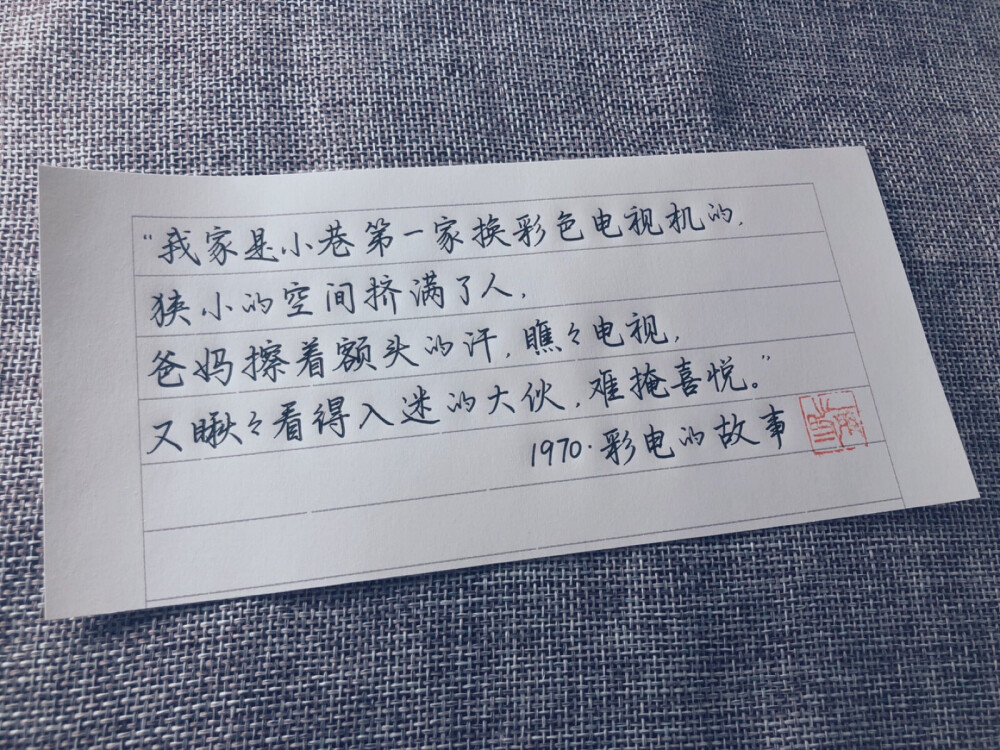 “我家是小巷第一家换彩色电视机的,
狭小的空间挤满了人,
爸妈擦着额头的汗,瞧々电视,
又瞅々看得入迷的大伙,难掩喜悦。”
1970·彩电的故事